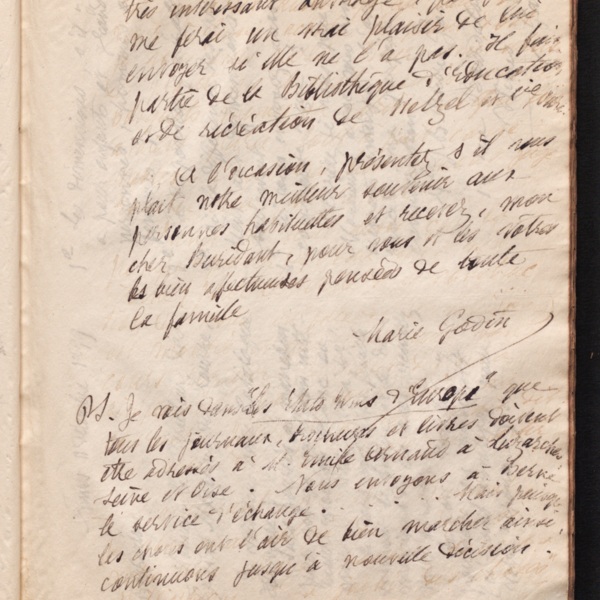 très intéressant ouvrage,
me ferai un vrai plaisir de lui
envoyer si elle ne l'a pas. Il fait
partie de la Bibliothèque d'Education
et de récréation de Hetzel et Cie
A l'occasion, présentez s'il vous
plaît notre meilleur souvenir aux
personnes habituelles et recevez, mon
cher Buridant, pour vous et les vôtres
les bien affectueuses pensées de toute
la famille
Marie Godin
PS. Je vois dans "Les Etats unis d'Europe" que
tous les journaux, brochures et livres doivent
être adressés à M. Emile Arnaud à Luzarches
Seine et Oise. Nous envoyons à Berne
le service d'échange. Mais puisque
les choses ont l'air de bien marcher ainsi,
continuons jusqu'à nouvelle décision.